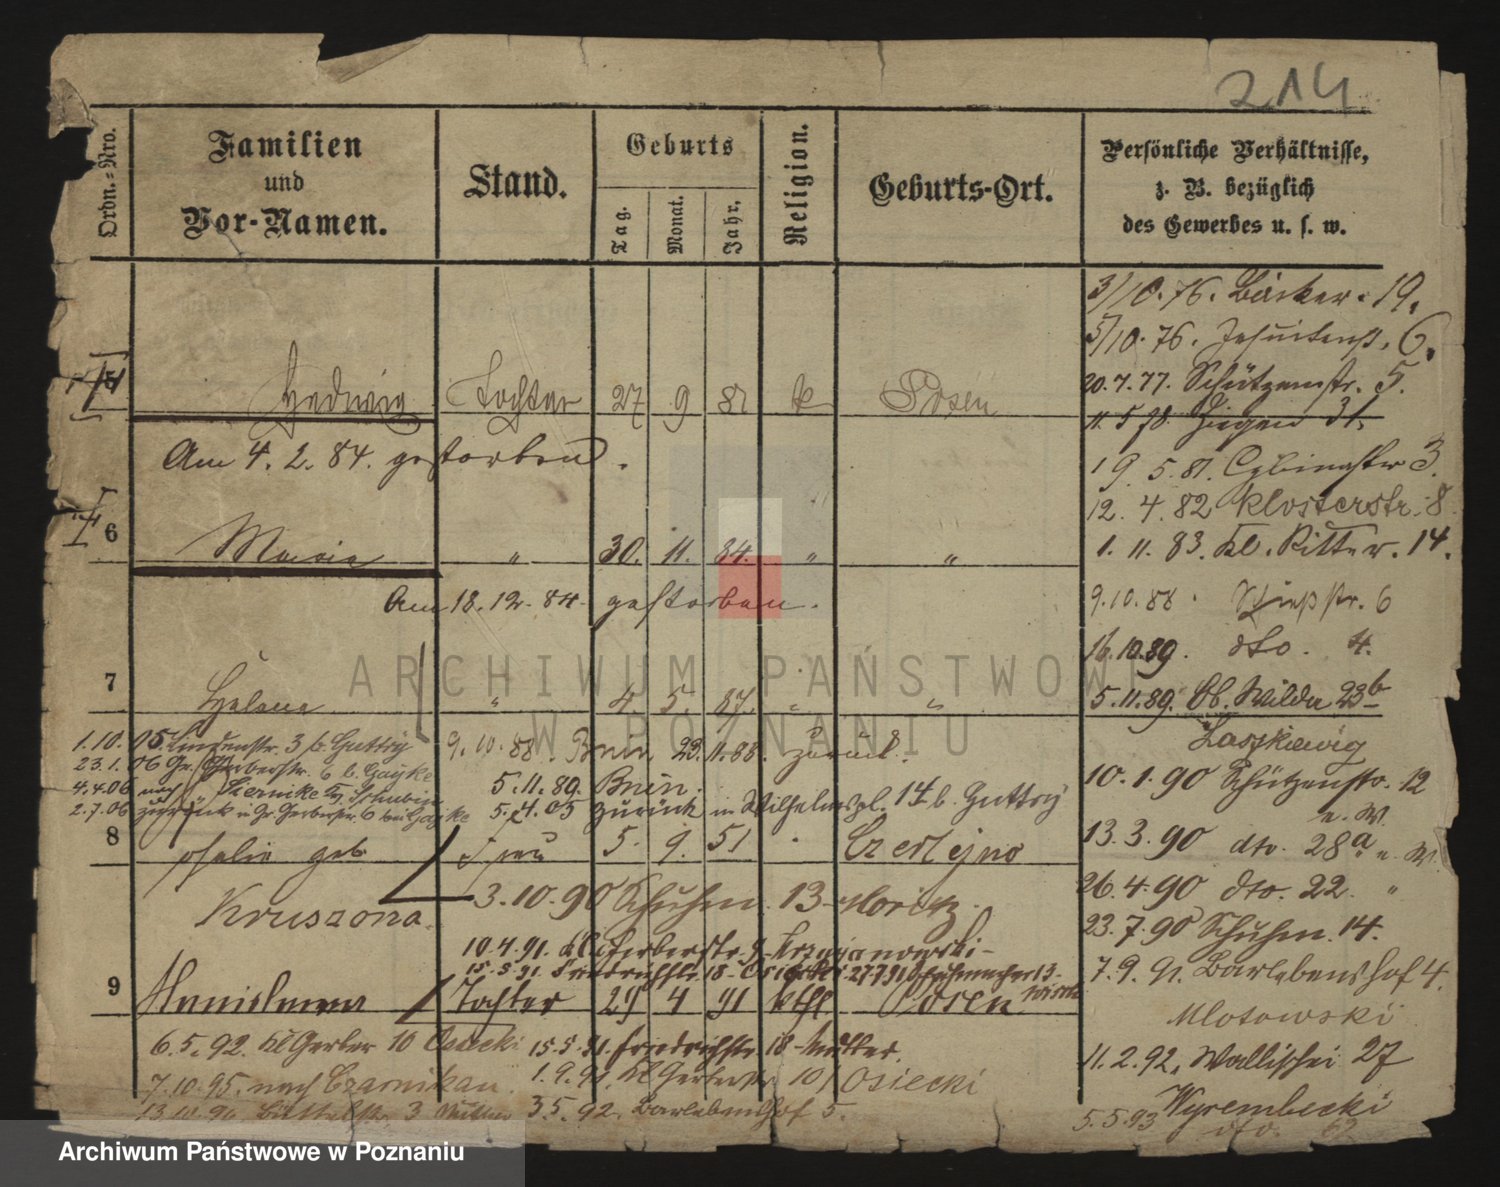 214
Ordn.-Nro.
Familien
und
Vor-Namen.
Stand.
Geburts
Tag.
Monat.
Jahr.
Religion.
Geburts-Ort.
Persönliche Verhältnisse,
z. B. bezüglich
des Gewerbes u. s. w.
3/10. 76. Bäcker. 19.
5/10. 76. Jesuitenstr. 6.
20. 7. 77. Schützenstr. 5.
11. 5. 78. Ziegen 31.
5 Hedwig Tochter 27 9 81 k Posen
Am 4. 2. 84. gestorben.
19. 5. 81. Cybinastr 3.
12. 4. 82 Klosterstr. 8.
1. 11. 83. Kl. Ritter. 14.
6 Maria " 30. 11. 84. " "
Am 18. 12. 84. gestorben.
9. 10. 88. 6
16. 10. 89. dto. 4.
5. 11. 89. Ob. Wilda 23b
7 Helena " 4. 5. 87. " "
Laszkewig
1. 10. 05. Lindenstr. 3 b. Guttzy
9. 10. 88. Bnin 23. 11. 88. zurück.
23. 1. 06 Gr. Gerberstr. 6 b. Gayke
5. 11. 89. Bnin.
10. 1. 90 Schützenstr. 12
4. 4. 06 nach Schubin
5. 4. 05 zurück in Wilhelmspl. 14 b. Guttzy
2. 7. 06 zurück n Gr. Gerberstr. 6 bei Gayke
a. W.
13. 3. 90 dto. 28a a. W.
8 geb Frau 5. 9. 51 " Czerlejno
Kruszona.
26. 4. 90 dto. 22. "
3. 10. 90 Schuhm. 13 Moritz.
23. 7. 90 Schuhm. 14.
10. 4. 91. Kl. Gerberstr. 9 Krzyżanowski
15. 5. 91 Friedrichstr. 18 27 7 91 Schuhmacher 13
7. 9. 91. Barlebenshof 4.
9 Tochter 29 4 91 kthl Posen
Mlotowski
6. 5. 92. Kl Gerber 10 Osiecki 15. 5. 91. Friedrichstr 18 Mutter.
11. 2. 92. Wallischei 27
7. 10. 95. nach Czarnikau. 1. 9. 91. Kl Gerberstr 10/ Osiecki
Wyrembecki
3. 5. 92. Barlebenshof 5.
5. 5. 93 dto.
ARCHIWUM PAŃSTWOWE
W POZNANIU
Archiwum Państwowe w Poznaniu